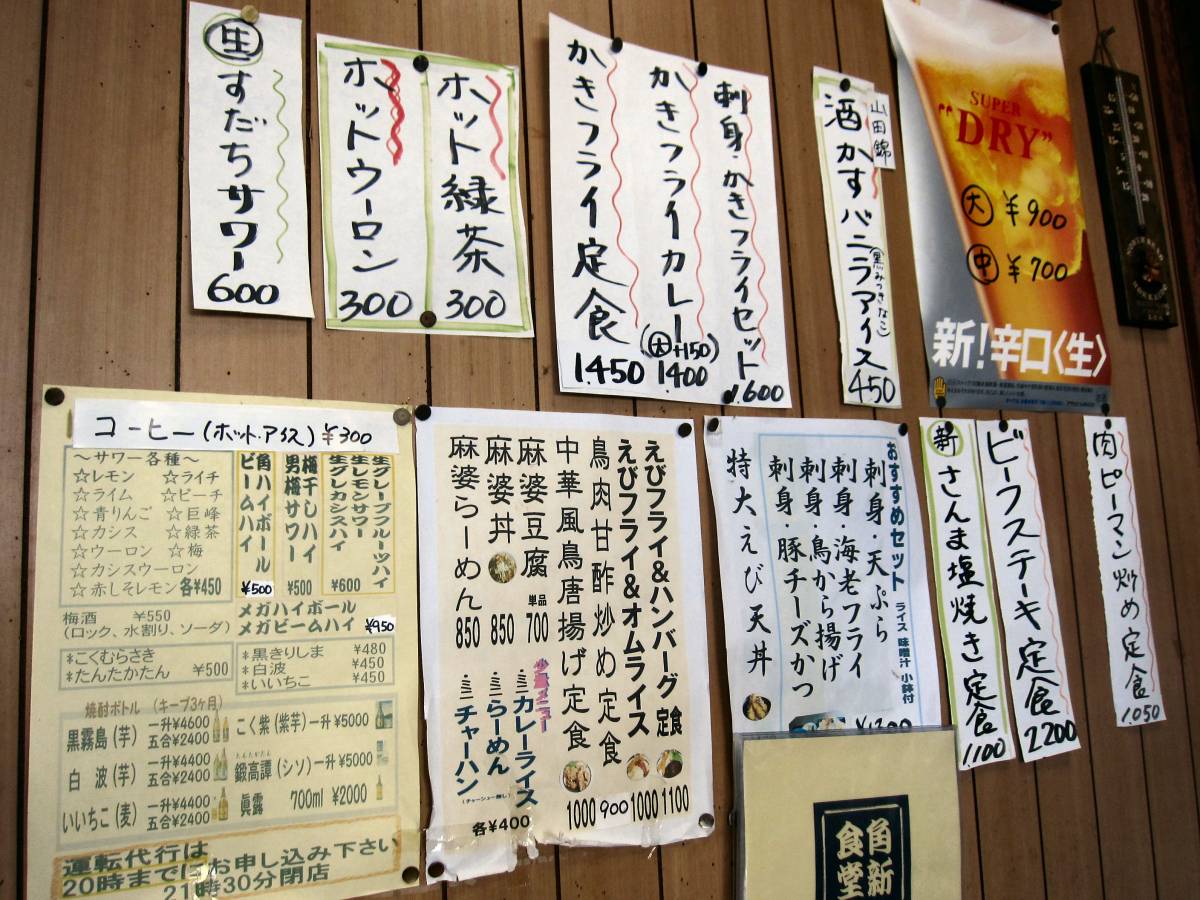 生 すだちサワー
600
ホット緑茶
300
ホットウーロン
300
刺身・かきフライセット
1.600
かきフライカレー
(大+150)
1.400
かきフライ定食
1.450
山田錦
酒かすバニラアイス
(黒みつきなこ)
450
SUPER
"DRY"
大 ¥900
中 ¥700
新!辛口〈生〉
コーヒー(ホット・アイス) ¥300
～サワー各種～
☆レモン ☆ライチ
☆ライム ☆ピーチ
☆青りんご ☆巨峰
☆カシス ☆緑茶
☆ウーロン ☆梅
☆カシスウーロン
☆赤しそレモン 各¥450
生グレープフルーツハイ
生レモンサワー
生グレカシスハイ
¥600
梅干しハイ
男梅サワー
¥500
角ハイボール
ビームハイ
¥500
梅酒 ¥550
(ロック、水割り、ソーダ)
メガハイボール
メガビームハイ ¥950
*こくむらさき
*たんたかたん ¥500
*黒きりしま ¥480
*白波 ¥450
*いいちこ ¥450
焼酎ボトル (キープ3ヶ月)
黒霧島(芋) 一升¥4600
五合¥2400
白 波(芋) 一升¥4400
五合¥2400
いいちこ(麦) 一升¥4400
五合¥2400
こく紫(紫芋)一升¥5000
たんたかたん
鍛高譚(シソ)一升¥5000
眞露 700ml ¥2000
運転代行は
20時までにお申し込み下さい
21時30分閉店
えびフライ&ハンバーグ定食
1100
えびフライ&オムライス
1000
鳥肉甘酢炒め定食
900
中華風鳥唐揚げ定食
1000
麻婆豆腐 単品
700
麻婆丼
850
麻婆らーめん
850
少量メニュー
・ミニカレーライス
・ミニらーめん
・ミニチャーハン
(チャーシュー無し)
各¥400
おすすめセット
ライス 味噌汁 小鉢付
刺身・天ぷら
刺身・海老フライ
刺身・鳥から揚げ
刺身・豚チーズかつ
特大えび天丼
肉ピーマン炒め定食
1.050
ビーフステーキ定食
2200
新 さんま塩焼き定食
1.100
角新
食堂